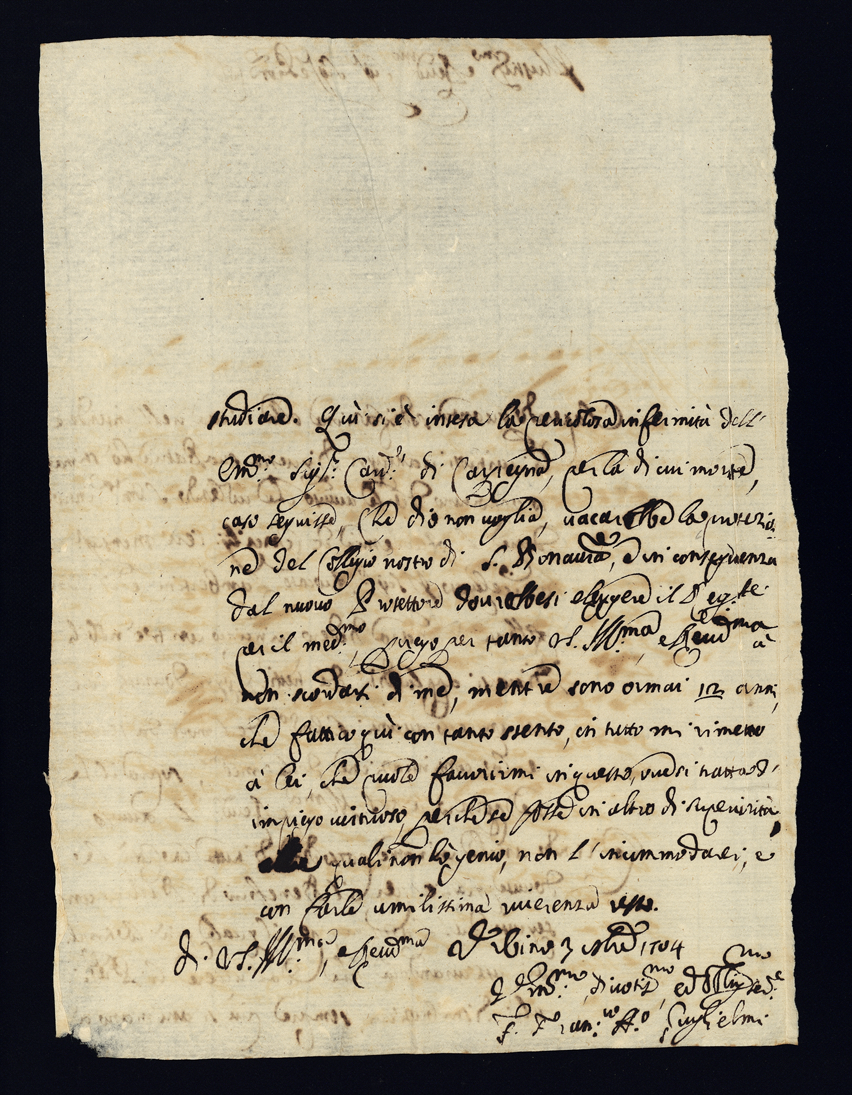 studiare. Quì si è intesa la pericolosa infermità dell'
Em.mo Sig.r Card.l di Carpegna, per la di cui morte,
caso seguisse, che dio non voglia, vacarebbe la protezio
ne del Collegio nostro di S. Bonav.ra, e in conseguenza
dal nuovo Protettore dovrebbesi eleggere il Regg.te
per il med.mo, Prego per tanto V.S. Ill.ma, e Rev.ma à
non scordarsi di me, mentre sono ormai 12 anni,
che fatico quì con tanto stento, in tutto mi rimetto
à lei, che vuole favorirmi in questo, ove si tratta d'
impiego virtuoso, perche se fosse in altro di superiorità,
alle quali non hò genio, non l'incommodarei, e
con farle umilissima riverenza resto.
di V.S. Ill.ma, e Rev.ma Urbino 3 1704
mo, divotis.mo ed
F. Fran.co Ant.o Guglielmi